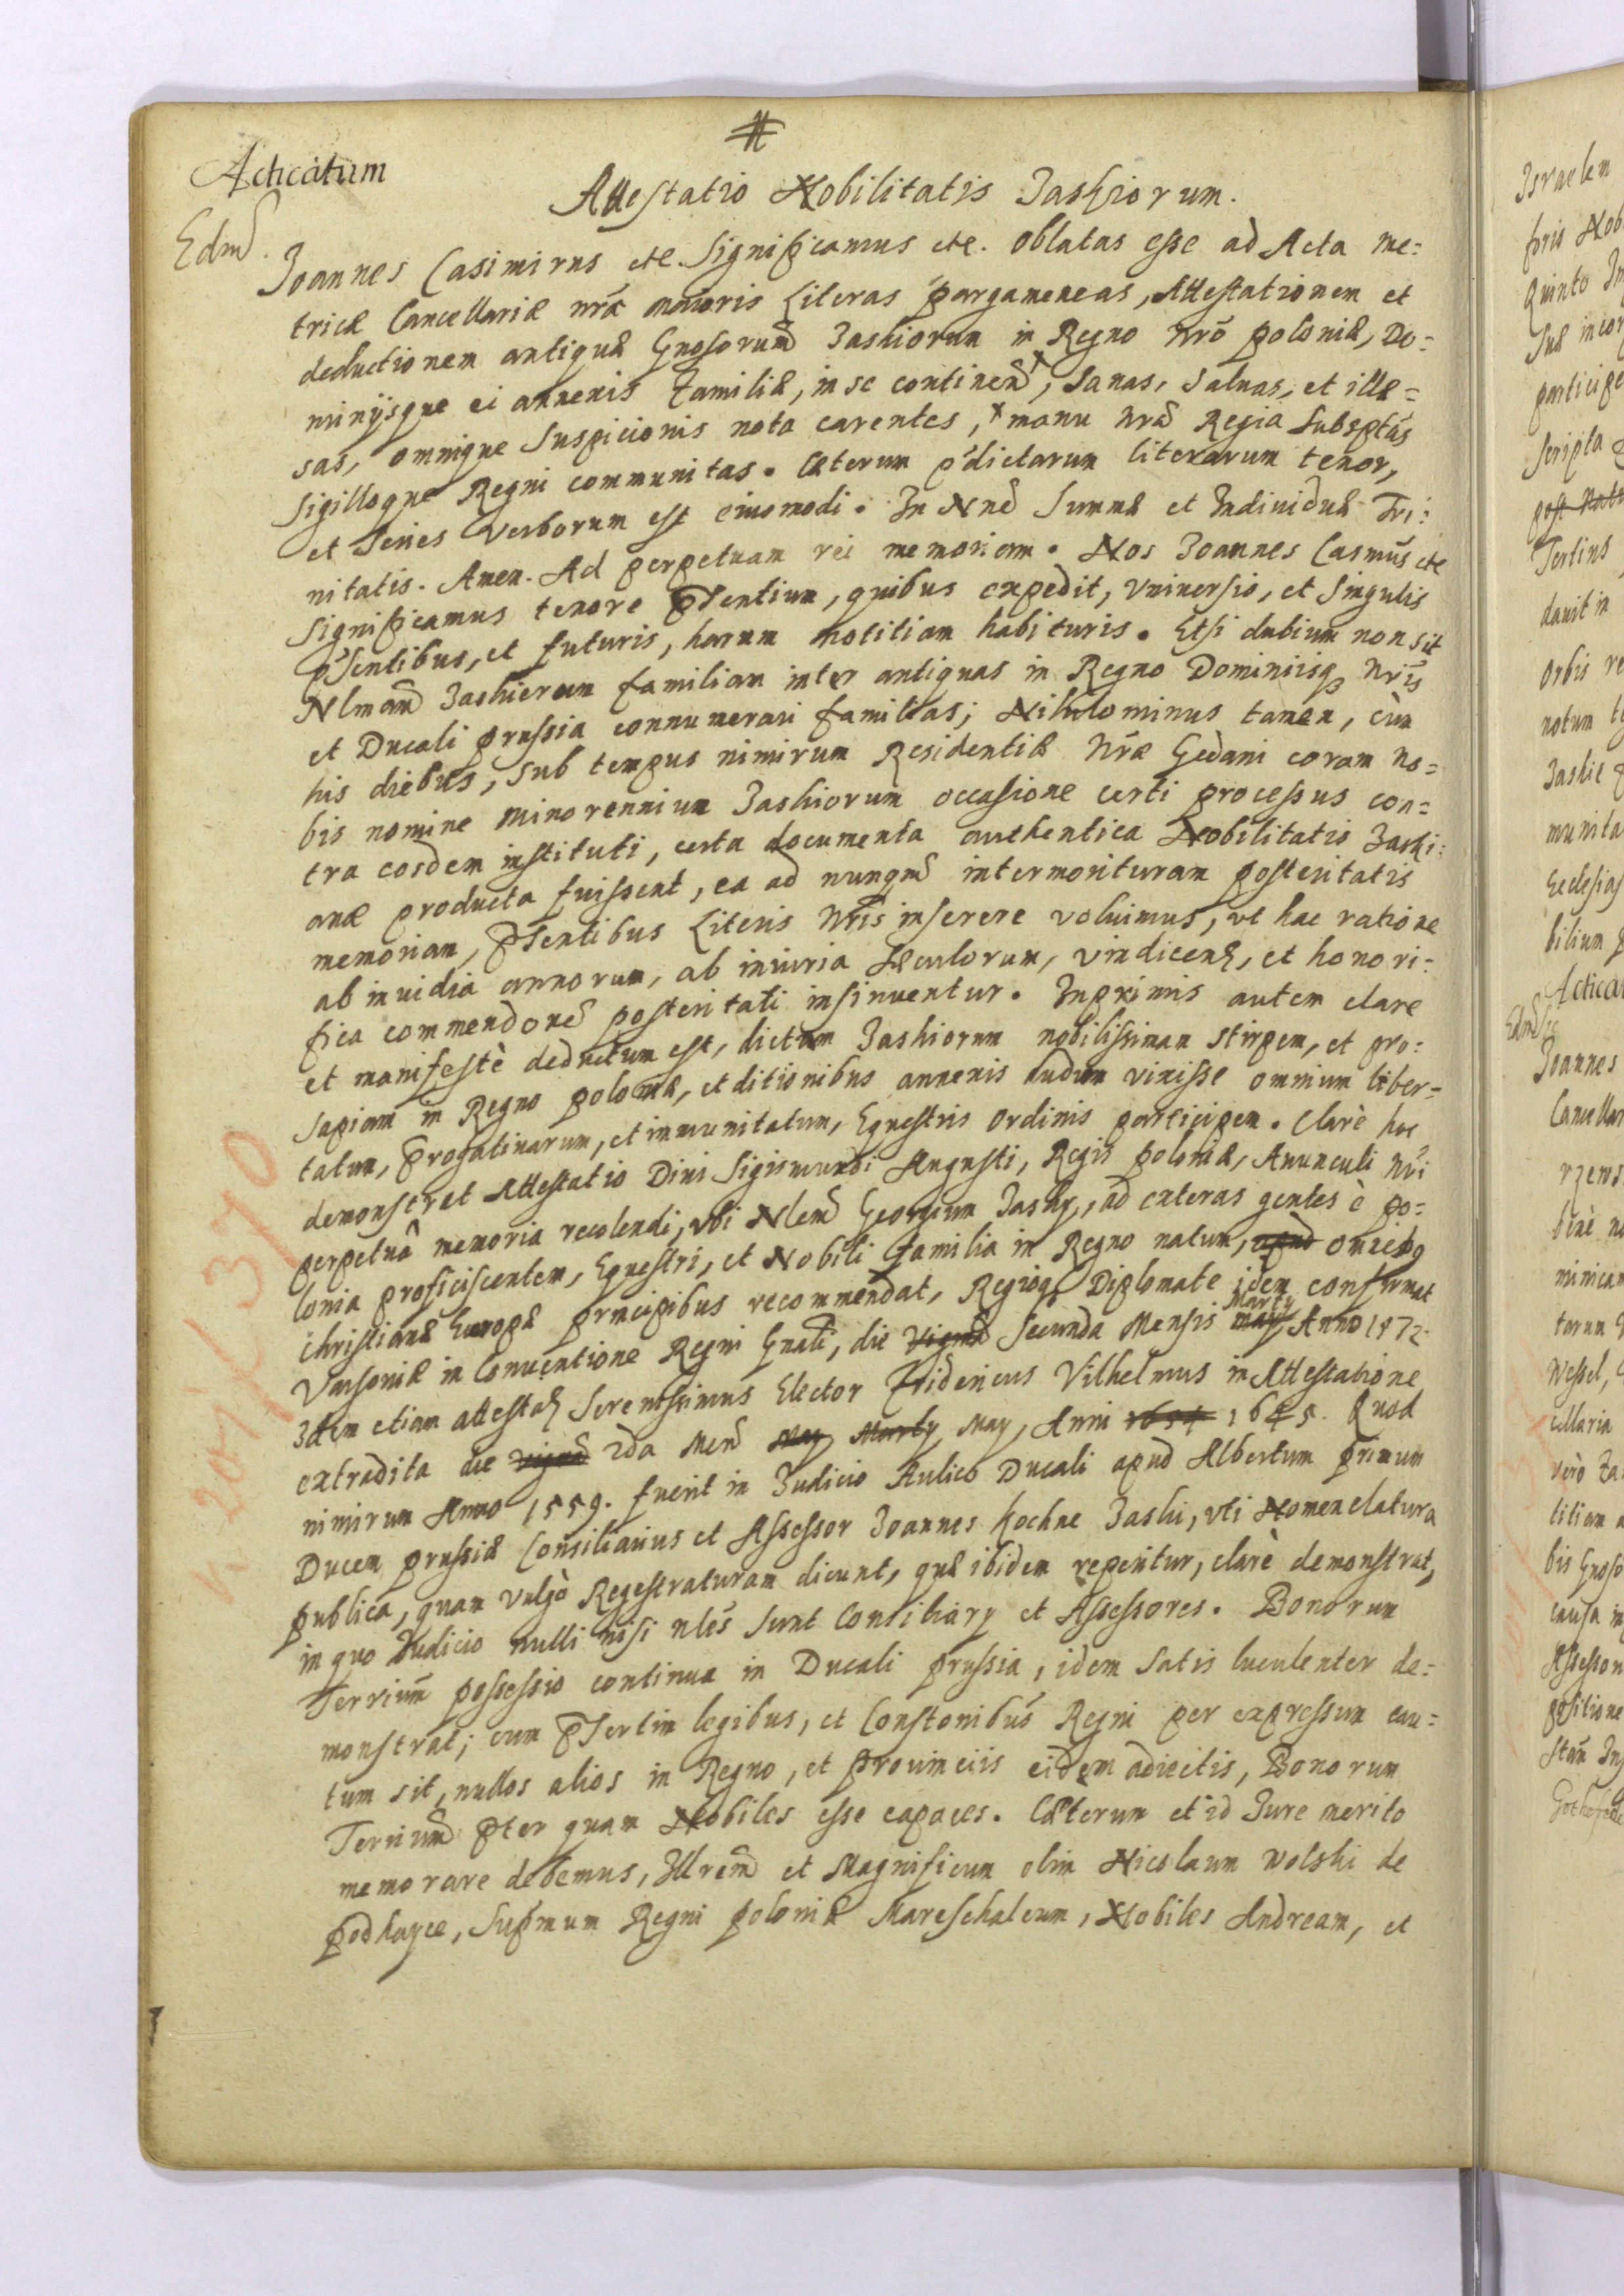 Acticatum
Attestatio Nobilitatis Jaskiorum.
Edmd.
Joannes Casimirus etc. Significamus etc. Oblatas esse ad Acta me=
tricæ Cancellariæ nr̃æ maioris Literas pargameneas, Attestationem et
deductionem antiquæ Gnosorum̃ Jaskiorum in Regno Nrõ Poloniæ, Do=
minijsque ei annexis Familiæ, in se continen̄, sanas, saluas, et illæ=
sas, omnique suspicionis nota carentes, x manu Nrã Regia Subsptas̃
Sigilloque Regni communitas. Cæterum p̃dictarum literarum tenor,
et Series Verborum est eiusmodi. In Nnẽ Summæ et Individuæ Tri=
nitatis. Amen. Ad perpetuam rei memoriam. Nos Joannes Casmũs etc
Significamus tenore p̃sentium, quibus expedit, vniuersis, et singulis
p̃sentibus, et futuris, harum notitiam habituris. Etsi dubium non sit
Nlmam̃ Jaskiorum familiam inter antiquas in Regno Dominiisq₃ Nr̃is
et Ducali Prussia connumerari familias; Nihilominus tamen, cùm
his diebus, sub tempus nimirum Residentiæ Nr̃æ Gedani coram no=
bis nomine Minorennium Jaskiorum occasione certi processus con=
tra eosdem instituti, certa documenta authentica Nobilitatis Jaski=
anæ producta fuissent, ea ad nunqm̃ intermorituram posteritatis
memoriam, p̃sentibus Literis Nr̃is inserere voluimus, vt hac ratione
ab inuidia annorum, ab iniuria sæculorum, vindicent₃, et honori=
fica commendonẽ posteritati insinuentur. Inprimis autem clare
et manifestè deductum est, dictam Jaskiorum nobilissimam stirpem, et pro=
sapiam in Regno Poloniæ, et ditionibus annexis dudum vixisse omnium liber=
tatum, Prærogatiuarum, et immunitatum, Equestris Ordinis participem. Clarè hoc
demonstrat Attestatio Diui Sigismundi Augusti, Regis Poloniæ, Auunculi Nr̃i
perpetuâ memoria recolendi, vbi Nlem̃ Georgium Jasky, ad exteras gentes è Po=
lonia proficiscentem, Equestri, et Nobili familia in Regno natum, apud omnibq
Christianæ Europæ principibus recommendat, Regioq₃ Diplomate idem confirmat
Varsoniæ in Conuentione Regni Gnali, die Vigma Secunda Mensis May Martij Anno 1572.
Idem etiam attestat₃ Serenissimus Elector Fridericus Vilhelmus in Attestatione
extradita die vigmã 2da Men̄ May Martij May, Anni 1654 1645. Quod
nimirum Anno 1559. fuerit in Judicio Aulico Ducali apud Albertum Primum
Ducem Prussiæ Consiliarius et Assessor Joannes Kochne Jaski, vti Nomenclatura
publica, quam vulgò Regestraturam dicunt, quæ ibidem reperitur, clarè demonstrat,
in quo Judicio nulli nisi nlẽs sunt Consiliarij et Assessores. Bonorum
Terrium̃ possessio continua in Ducali Prussia, idem satis luculenter de=
monstrat; cum p̃sertim legibus, et Constonibus̃ Regni per expressum cau=
tum sit, nullos alios in Regno, et Prouinciis eidem adiectis, Bonorum
Terrium̃ p̃ter quam Nobiles esse capaces. Cæterum et id Jure merito
memorare debemus, Illrem̃ et Magnificum olim Nicolaum Wolski de
Podhayce, Supm̃um Regni Poloniæ Mareschalcum, Nobiles Andream, et